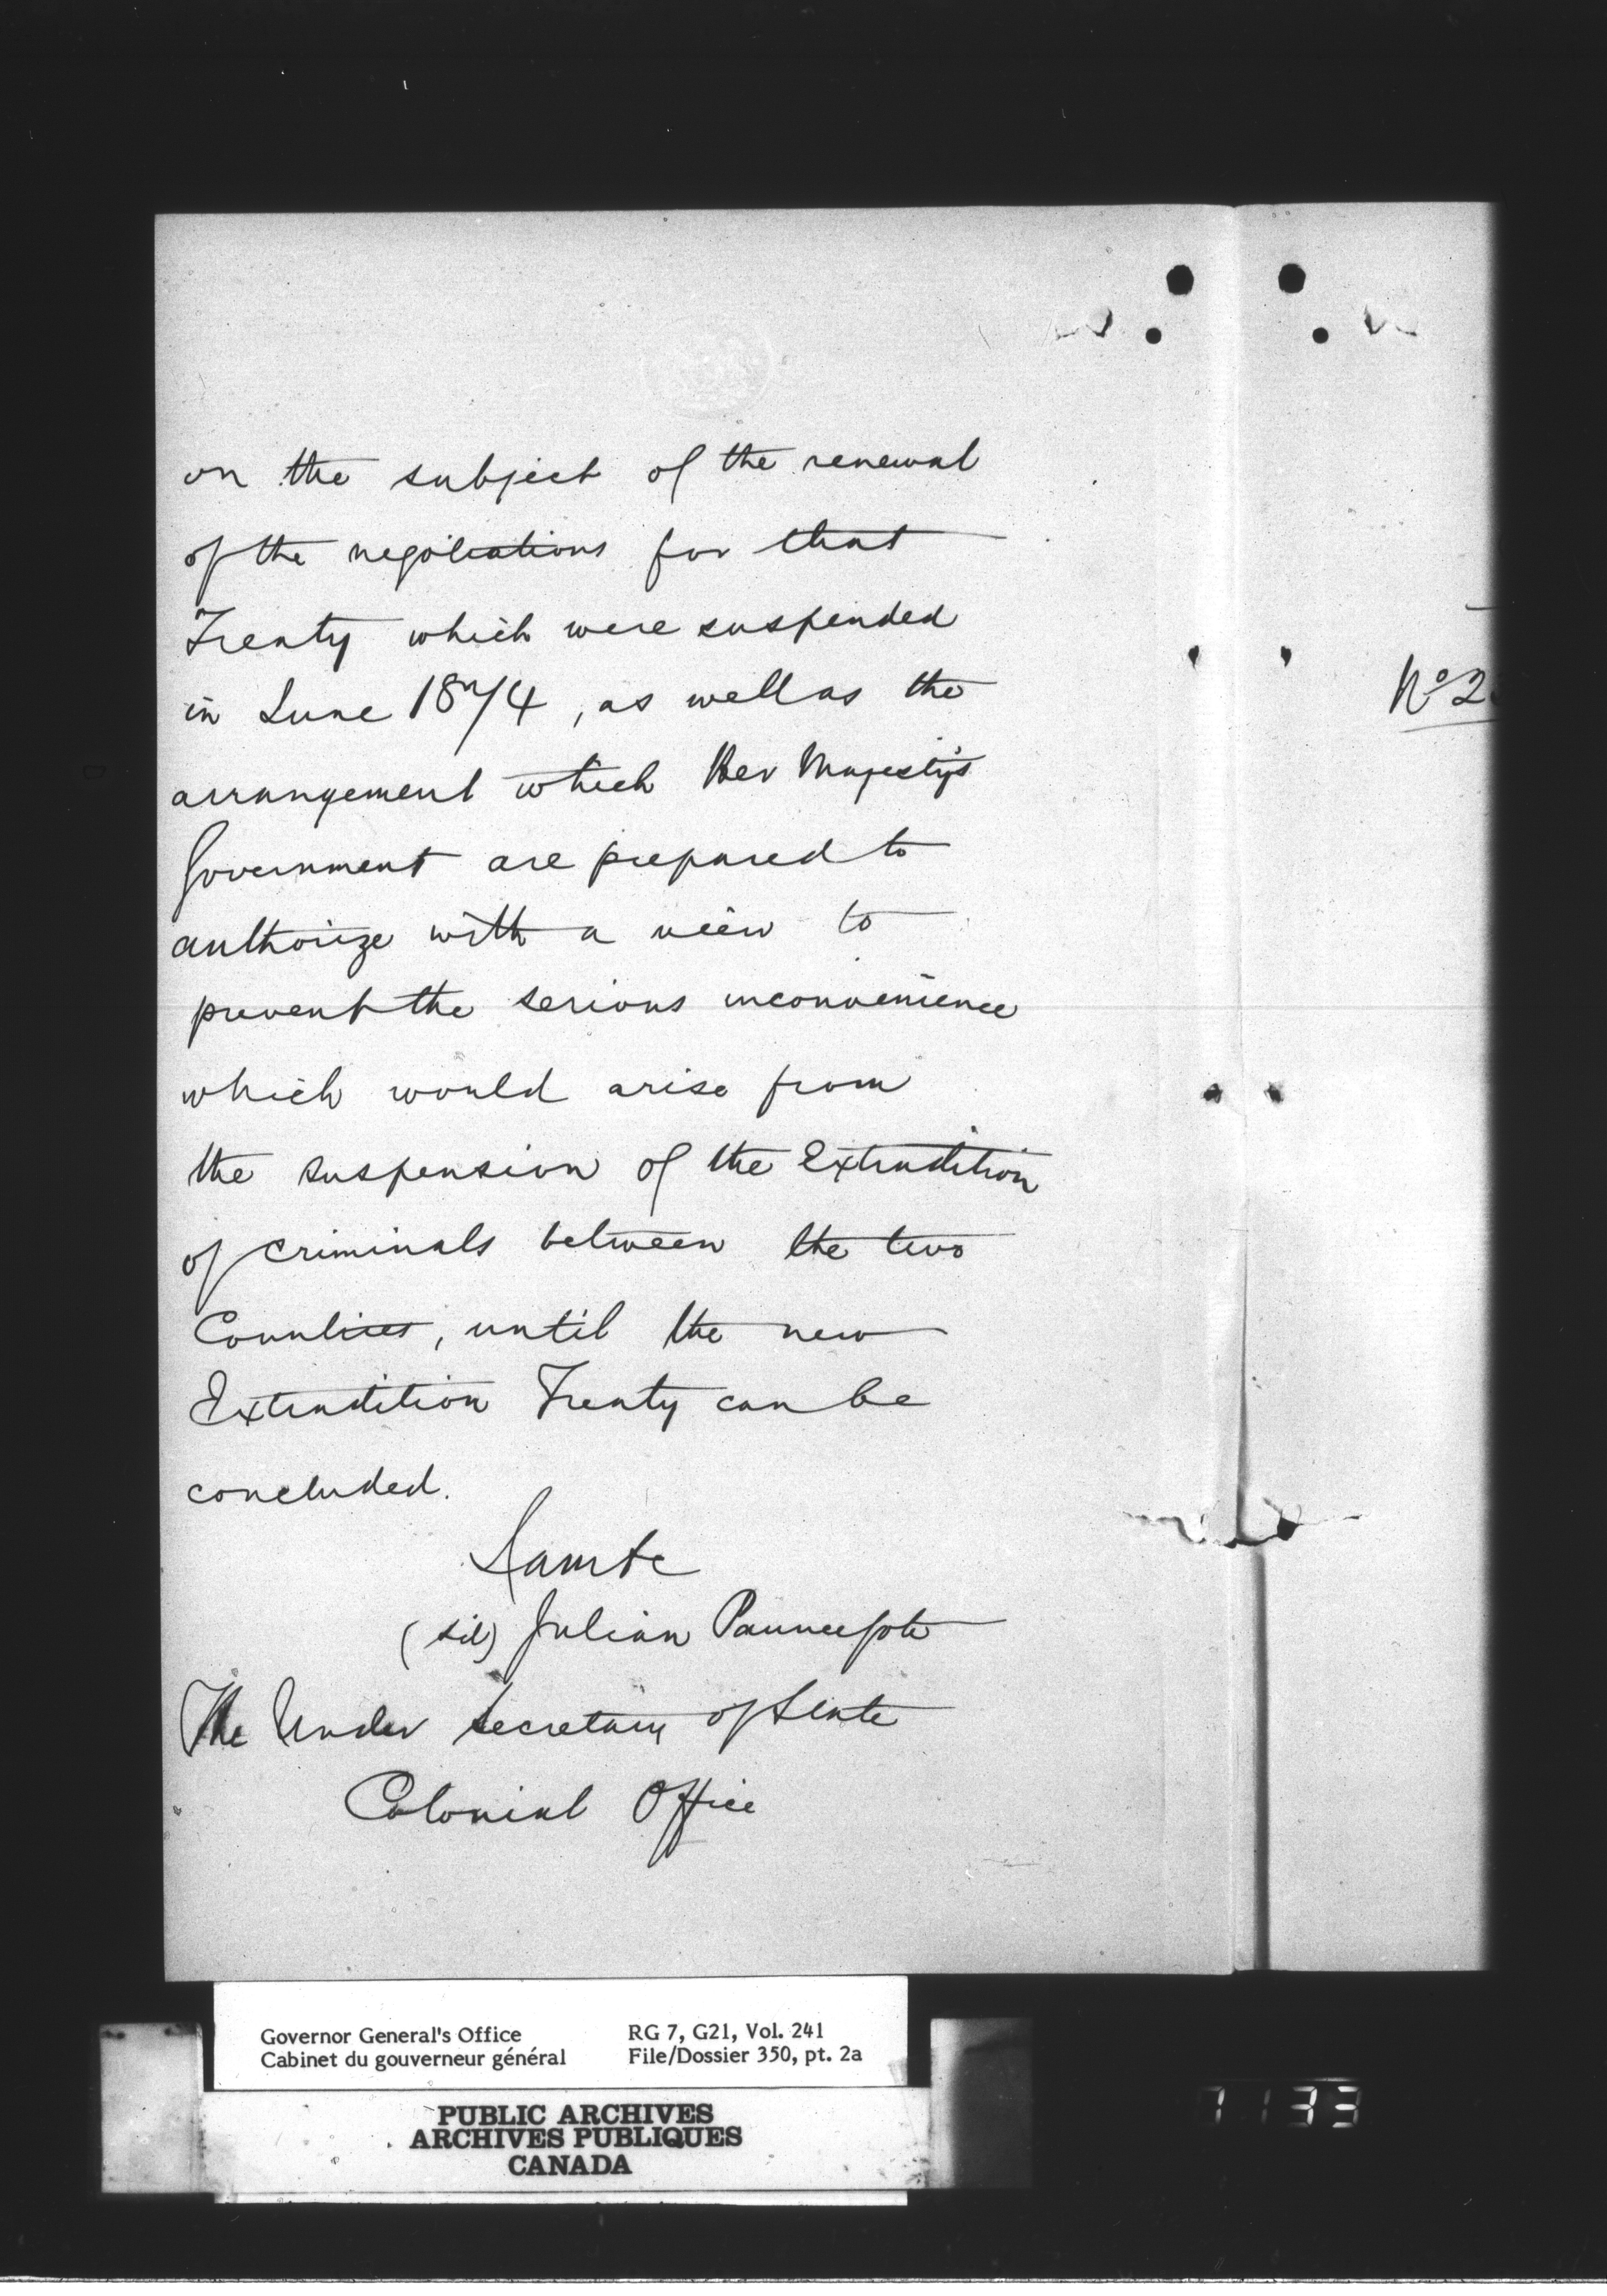 on the subject of the renewal
of the negotiations for that
Treaty which were suspended
in June 1874, as well as the
arrangement which Her Majesty's
Government are prepared to
authorize with a view to
prevent the serious inconvenience
which would arise from
the suspension of the Extradition
of criminals between the two
Countries, until the new
Extradition Treaty can be
concluded.
I am &c
(sd) Julian Pauncefote
The Under Secretary of State
Colonial Office
No 2
Governor General's Office
Cabinet du gouverneur général
RG 7, G21, Vol. 241
File/Dossier 350, pt. 2a
PUBLIC ARCHIVES
ARCHIVES PUBLIQUES
CANADA
1133